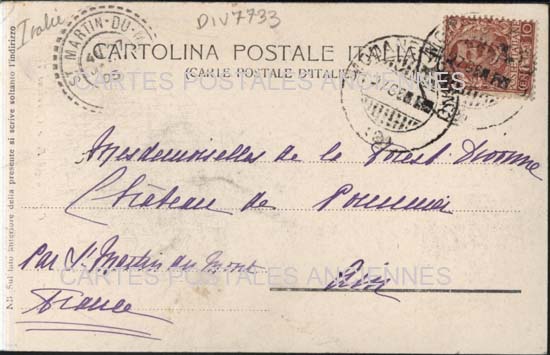 Italie
DIV7733
ST MARTIN-DU-M
05
CARTOLINA POSTALE ITALIANA
(CARTE POSTALE D'ITALIE)
CARTES POSTALES ANCIENNES
NB. Sul lato anteriore della presente si scrive soltanto l'indirizzo
Mesdemoiselles de la Forest Divonne
Château de
Par St Martin du Mont
Ain
CARTES POSTALES ANCIENNES
France